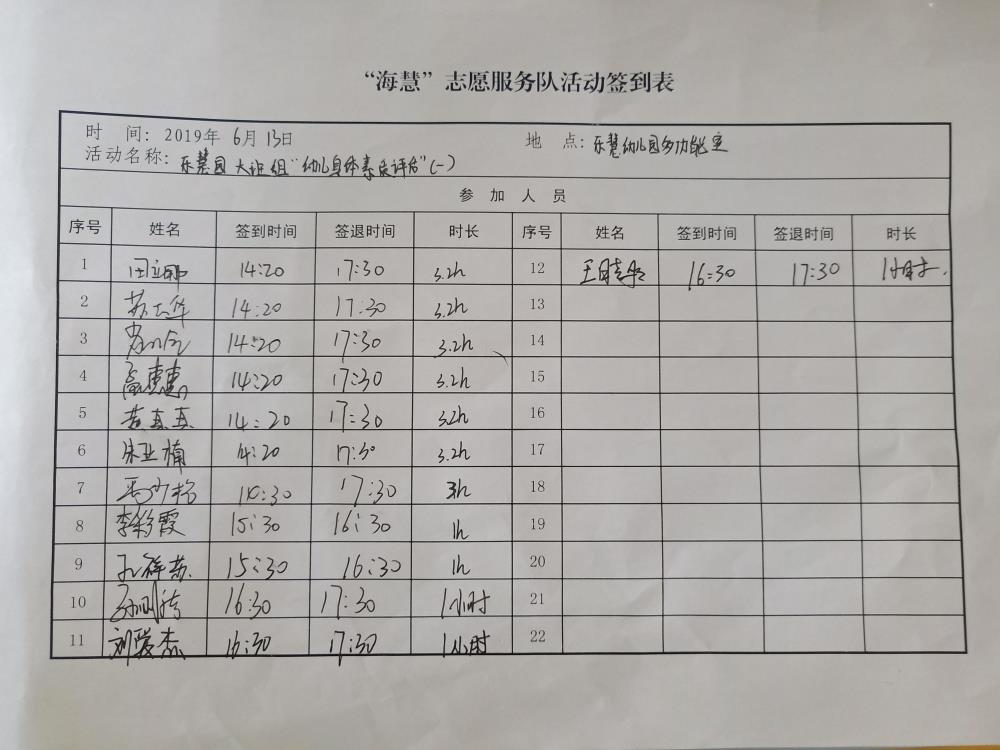 “海慧”志愿服务队活动签到表
时 间: 2019年 6月 13日 地 点: 乐慧幼儿园多功能室
活动名称: 乐慧园 大班组“幼儿身体素质评估”(一)
参 加 人 员
序号 姓名 签到时间 签退时间 时长 序号 姓名 签到时间 签退时间 时长
1 14:20 17:30 3.2h 12 16:30 17:30 1小时.
2 14:20 17:30 3.2h 13
3 14:20 17:30 3.2h 14
4 高惠惠 14:20 17:30 3.2h 15
5 黄真真 14:20 17:30 3.2h 16
6 朱亚楠 14:20 17:30 3.2h 17
7 17:30 3h 18
8 李彩霞 15:30 16:30 1h 19
9 孔祥苏 15:30 16:30 1h 20
10 16:30 17:30 1小时 21
11 刘爱杰 16:30 17:30 1小时 22